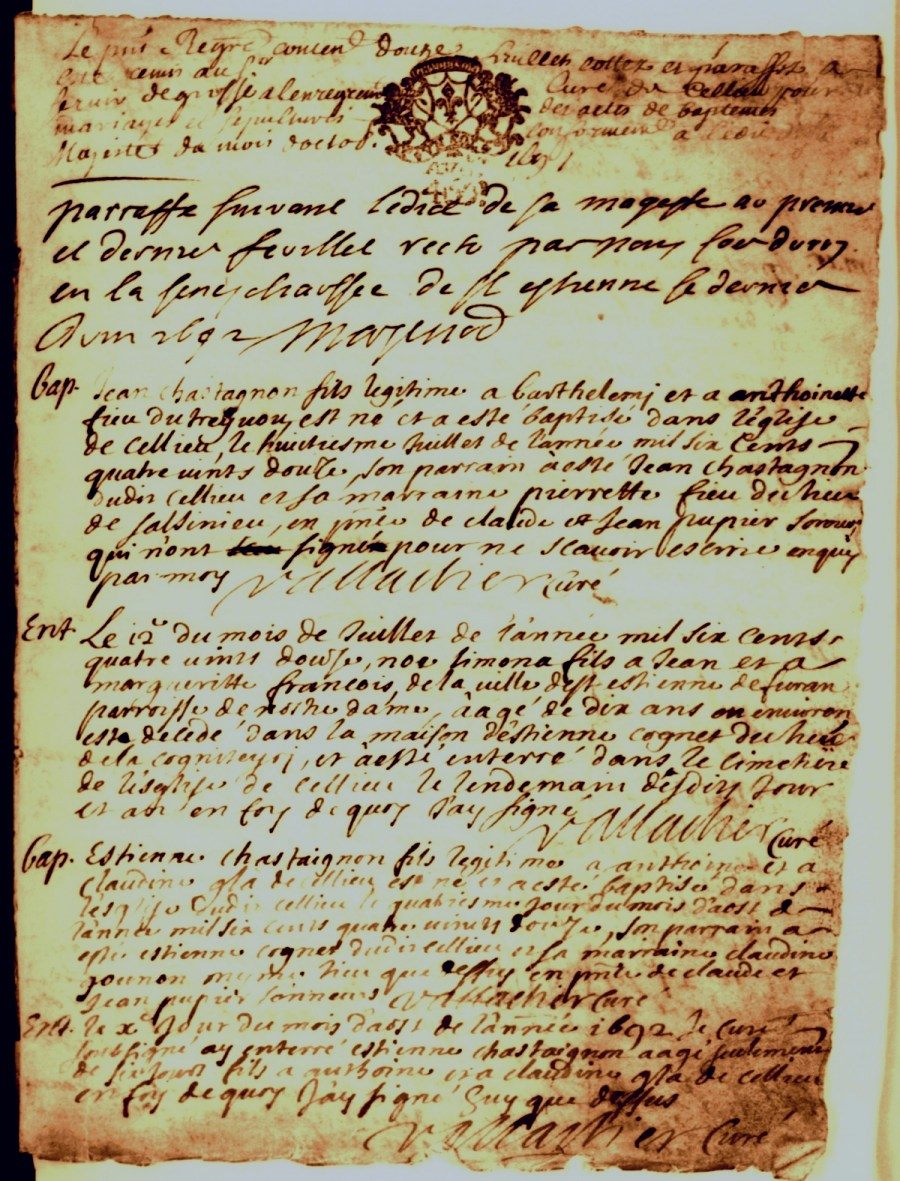 Le pnt Regre contenD douze feuillets cottez et paraffez a
este remis au Sr Curé de Cellieu pour
servir de grosse a lenregrem des actes de baptemes
mariages et sepultures conformemt a ledit de Sa
Majesté du mois doctob. 1691
parraffe suivant l'édict de sa mageste au premier
et dernier feuillet recto par nous
en la seneschaussée de st estienne le dernier
Juin 1692 Mazenod
Bap. Jean chastagnon fils legitime a barthelemj et a anthoinette
fieu du treynou, est né et a esté baptisé dans l'église
de Cellieu, le huitiesme Juillet de l'année mil six cents
quatre vints douze, son parrain à esté Jean chastagnon
dudit Cellieu et sa marraine pierrette fieu du lieu
de salsinieu, en pnce de claude et Jean pupier
qui n'ont signé pour ne scavoir escrire enquis
par moy Vallachier Curé
Ent Le 12e du mois de Juillet de l'année mil six cents
quatre vints douze, noe simona fils a Jean et a
margueritte francois, de la ville de st estienne de furan
parroisse de nostre dame, àagé de dix ans ou environ
este decedé dans la maison d'estienne cognet du lieu
de la , et à esté enterré dans le cimetiere
de l'esglise de Cellieu le lendemain desdits Jour
et an en foy de quoy J'ay signé
Vallachier Curé
Bap. Estienne chastaignon fils legitime a anthoine et a
claudine gla de cellieu est né et a esté baptisé dans
l'esglise dudit cellieu le quatriesme jour du mois d'aost de
l'année mil six cents quatre vints douze, son parrain a
esté estienne cognet dudit Cellieu et sa marraine claudine
gounon mesme lieu que dessus en pnce de claude et
Jean pupier sonneurs Vallachier curé
Ent. le xe Jour du mois d'aost de l'année 1692 Je Curé
soussigné ay enterré estienne chastaignon aagé seulement
de six jours fils a anthoine et a claudine gla de cellieu
en foy de quoy J'ay signé que dessus
Vallachier Curé